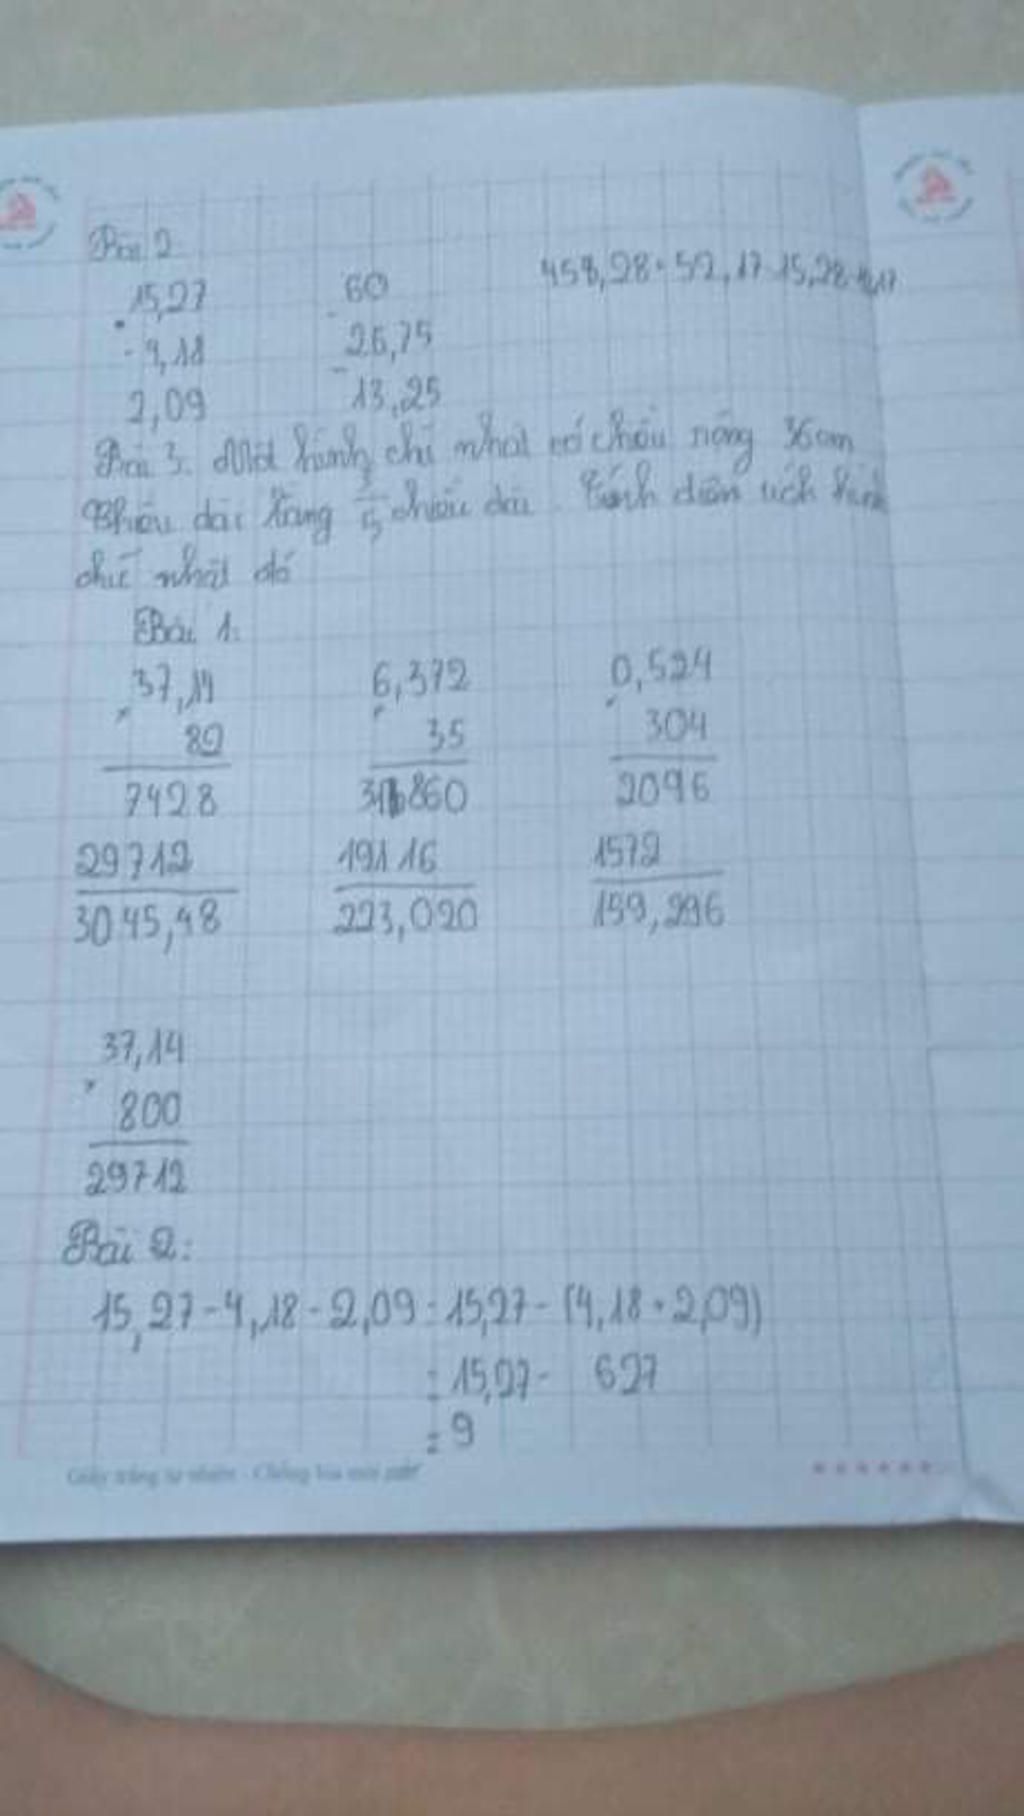 Bài 2
15,27 60 458,28 + 52,17 - 15,28
- 4,18 - 26,75
2,09 - 13,25
Bài 3. Một hình chỉ nhat có chiều rông 36 cm
Chiều dài bằng 3/5 chiều dài. Tính diên tích hình
chữ nhât đó
Bài 1:
37,14 6,372 0,524
× 82 × 35 × 304
7428 31860 2096
29712 19116 1572
3045,48 223,020 159,296
37,14
× 800
29712
Bài 2:
15,27 - 4,18 - 2,09 = 15,27 - (4,18 + 2,09)
= 15,27 - 627
= 9
Giấy trắng tự nhiên - Chống lóa mỏi mắt